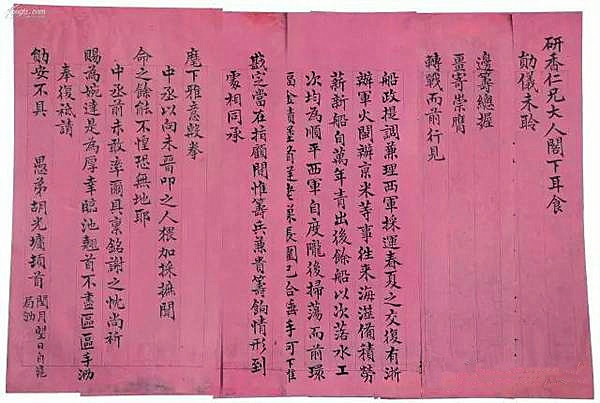 研香仁兄大人閣下耳食
勛儀未聆
邊籌總握
畺寄崇膺
轉戰而前行見
船政提調兼理西軍採運春夏之交復有浙
辦軍火閩辦京米等事往來海澨備積勞
薪新船旬萬年青出後餘船以次落水工
次均為順平西軍自度隴後掃蕩而前環
戡定當在指顧間惟籌兵兼貴籌餉情形到
處相同承
麾下雅意殷拳
中丞以尚未晉叩之人猥加採摭聞
命之餘能不惶恐無地耶
中丞前未敢率爾具稟銘謝之忱尚祈
賜為婉達是為厚幸臨池翹首不盡區區手泐
奉復祗請
勛安不具 愚弟胡光墉頓首